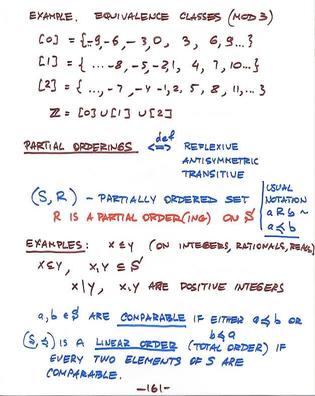 EXAMPLE. EQUIVALENCE CLASSES (MOD 3)
[0] = {-9,-6,-3,0, 3, 6, 9...}
[1] = { ...-8,-5,-2,1, 4, 7, 10...}
[2] = { ..., -7, -4 -1, 2, 5, 8, 11,... }
Z = [0] ∪ [1] ∪ [2]
PARTIAL ORDERINGS <=> def REFLEXIVE
ANTISYMMETRIC
TRANSITIVE
(S, R) - PARTIALLY ORDERED SET
R IS A PARTIAL ORDER(ING) ON S
USUAL
NOTATION
a R b ~
a ≼ b
EXAMPLES: x ≤ y (ON INTEGERS, RATIONALS, REALS)
X ⊆ Y, X, Y ⊆ S
x | y, x, y ARE POSITIVE INTEGERS
a, b ∈ S ARE COMPARABLE IF EITHER a ≼ b OR
b ≼ a
(S, ≼) IS A LINEAR ORDER (TOTAL ORDER) IF
EVERY TWO ELEMENTS OF S ARE
COMPARABLE.
-161-